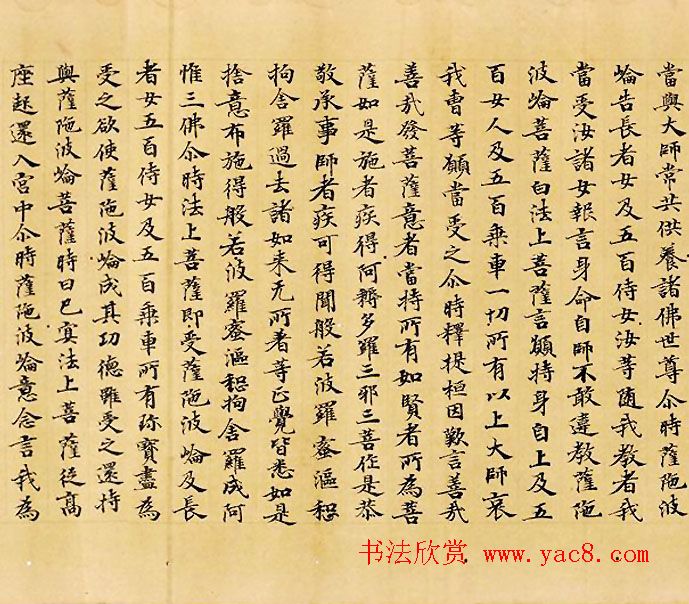 當與大師常共供養諸佛世尊尒時薩陁波
崘告長者女及五百侍女汝等随我教者我
當受汝諸女報言身命自師不敢違教薩陁
波崘菩薩白法上菩薩言願持身自上及五
百女人及五百乘車一切所有以上大師哀
我曹等願當受之尒時釋提桓因歎言善哉
善哉發菩薩意者當持所有如賢者所為菩
薩如是施者疾得阿耨多羅三耶三菩作是恭
敬承事師者疾可得聞般若波羅蜜漚惒
拘舍羅過去諸如来无所著等正覺皆悉如是
捨意布施得般若波羅蜜漚惒拘舍羅成阿
惟三佛尒時法上菩薩即受薩陁波崘及長
者女五百侍女及五百乘車所有珎寶盡為
受之欲使薩陁波崘成其功德雖受之還持
與薩陁波崘菩薩時日已冥法上菩薩從髙
座起還入宮中尒時薩陁波崘意念言我為
书法欣赏 www.yac8.com